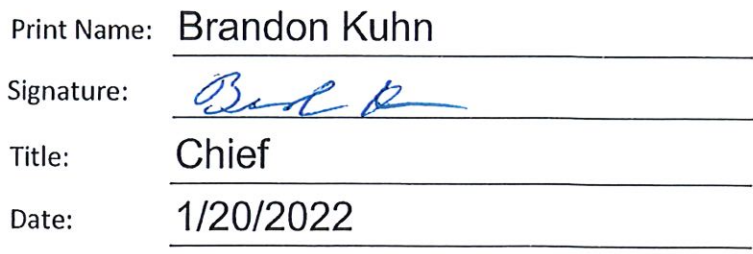 Print Name: Brandon Kuhn
Signature:
Title: Chief
Date: 1/20/2022